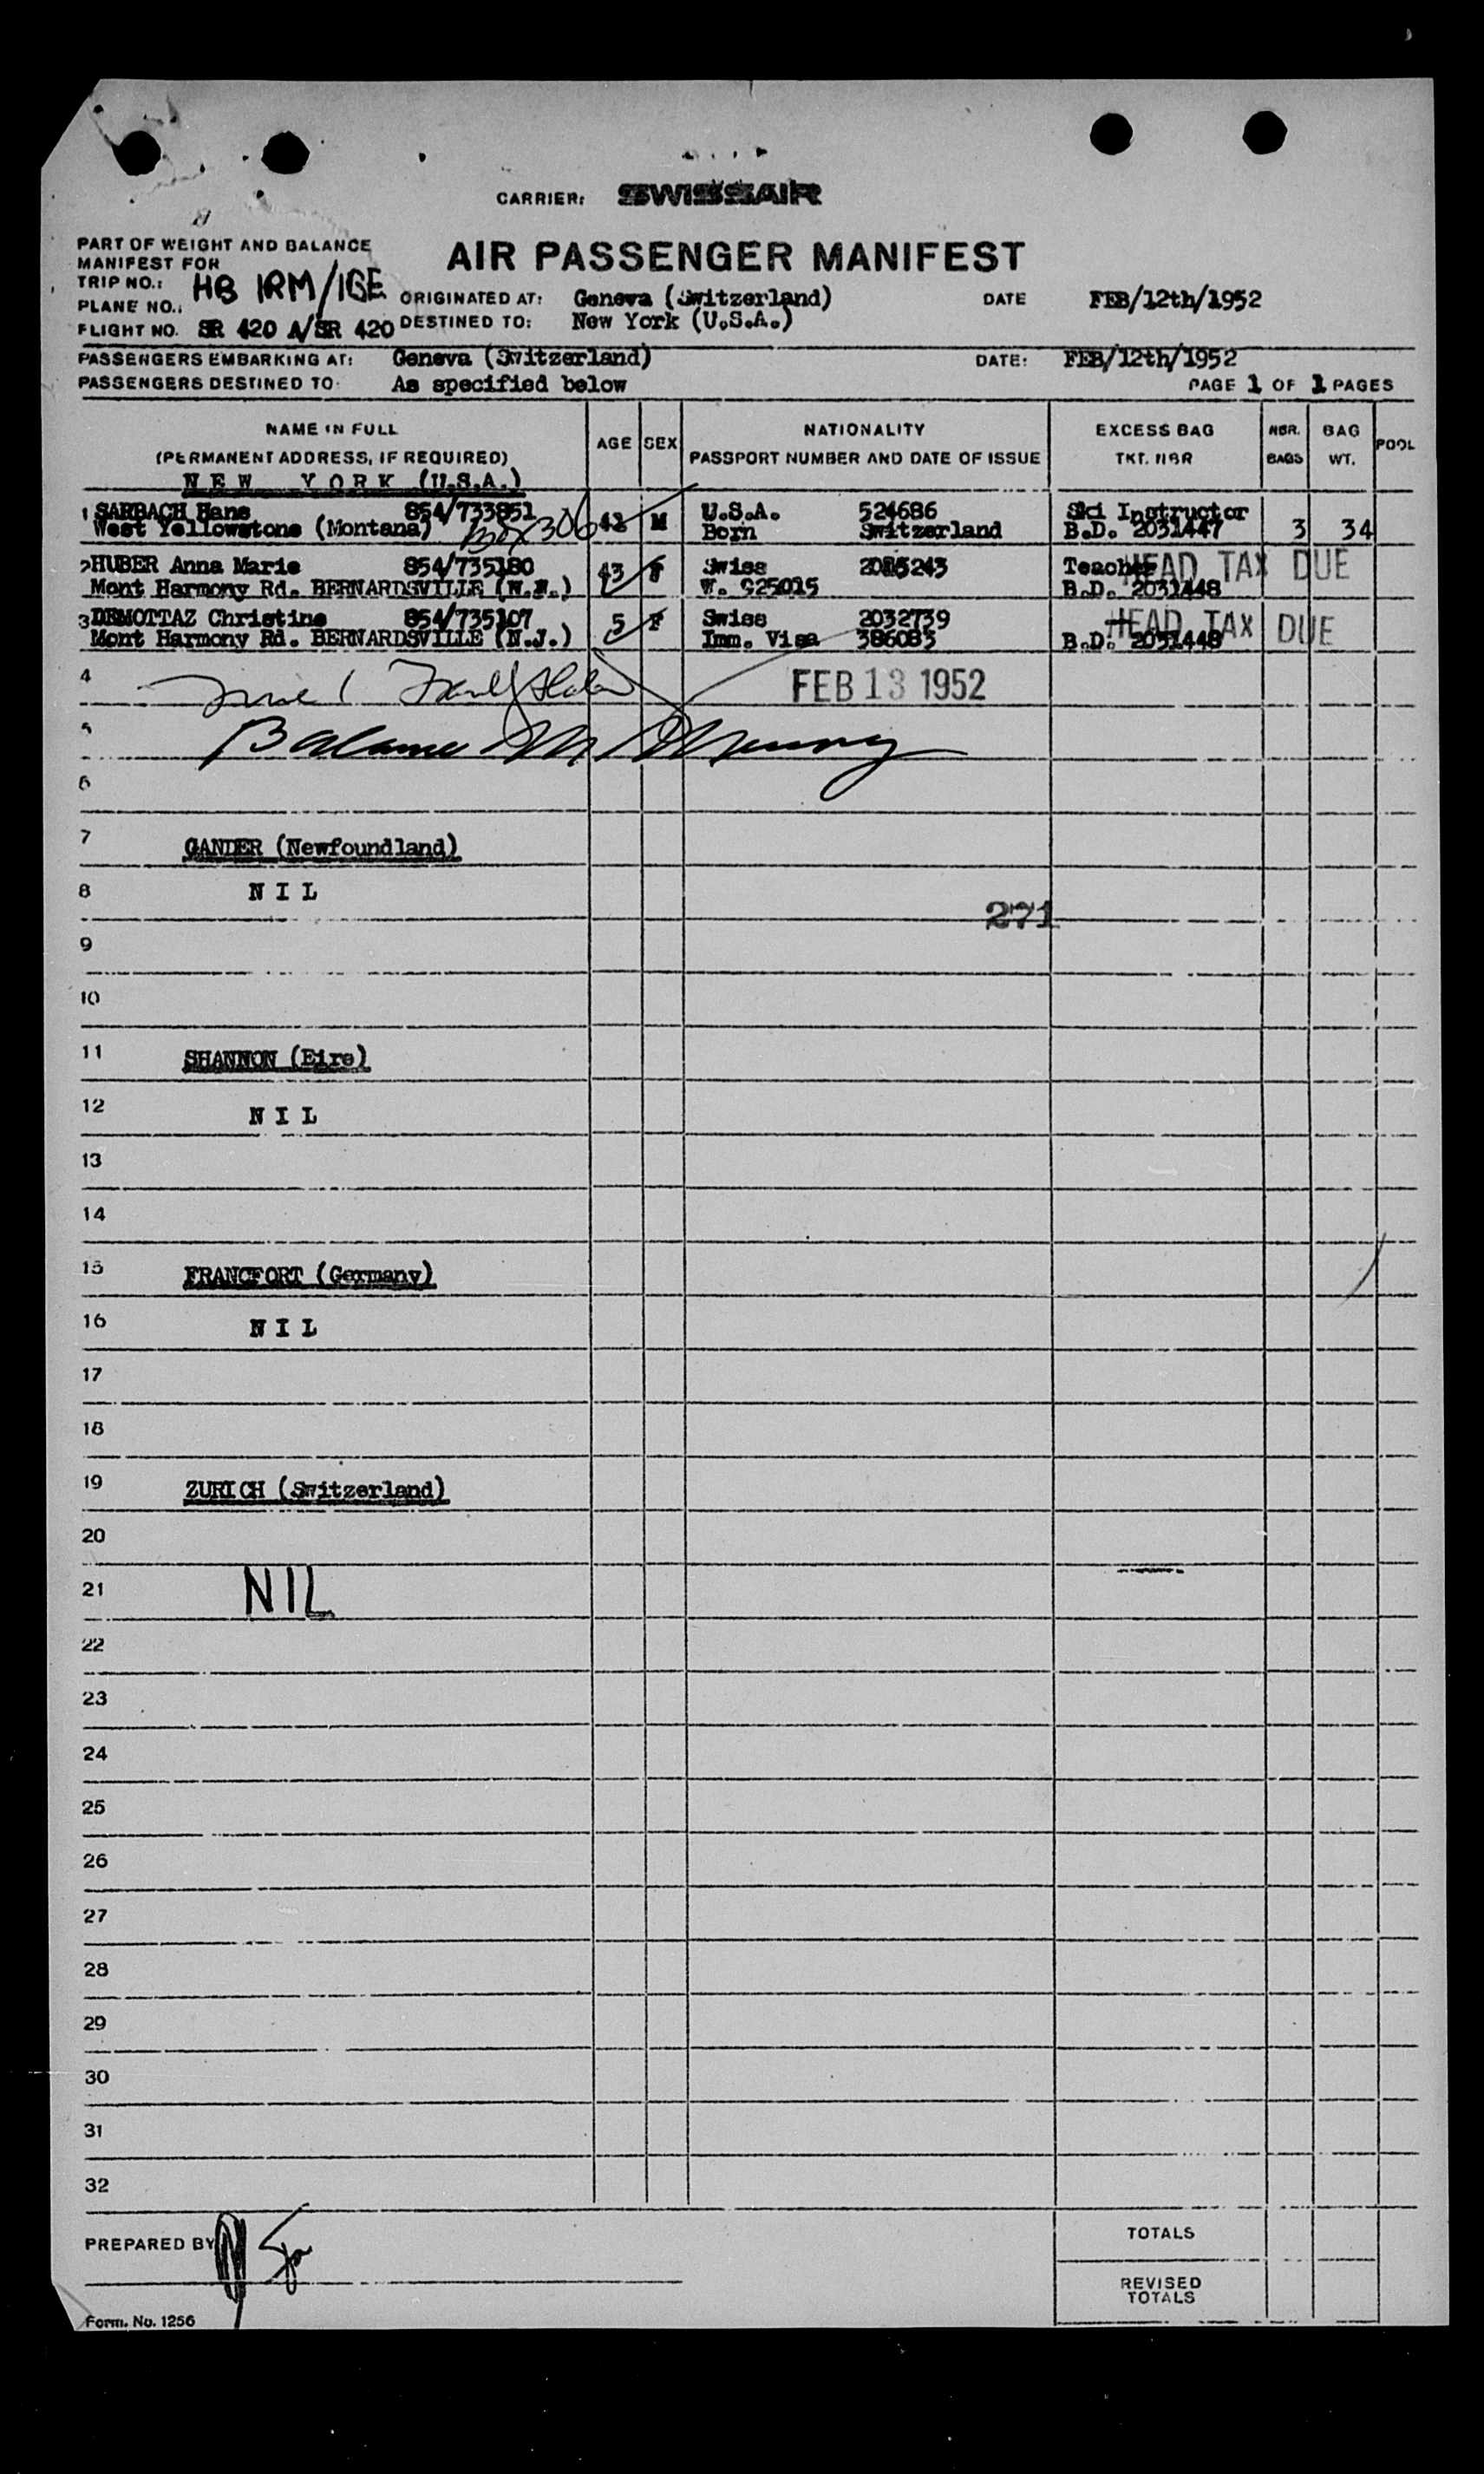 CARRIER: SWISSAIR
PART OF WEIGHT AND BALANCE
MANIFEST FOR
AIR PASSENGER MANIFEST
TRIP NO.:
PLANE NO.: HB IRM/IGE
ORIGINATED AT: Geneva (Switzerland) DATE FEB/12th/1952
FLIGHT NO. SR 420 A/SR 420 DESTINED TO: New York (U.S.A.)
PASSENGERS EMBARKING AT: Geneva (Switzerland) DATE: FEB/12th/1952
PASSENGERS DESTINED TO: As specified below PAGE 1 OF 1 PAGES
NAME IN FULL
(PERMANENT ADDRESS, IF REQUIRED) AGE SEX NATIONALITY
PASSPORT NUMBER AND DATE OF ISSUE EXCESS BAG
TKT. NBR NBR.
BAGS BAG
WT. POOL
NEW YORK (U.S.A.)
1 SARBACH Hans 854/733851 M U.S.A. 524686 Ski Instructor
West Yellowstone (Montana) Box 306 Born Switzerland B.D. 2031447 3 34
2 HUBER Anna Marie 854/735180 43 F Swiss Teacher HEAD TAX DUE
Mont Harmony Rd. BERNARDSVILLE V. 925015 B.D. 2031448
3 DEMOTTAZ Christine 854/735107 5 F Swiss 2032739 HEAD TAX DUE
Mont Harmony Rd. BERNARDSVILLE (N.J.) Imm. Visa 386083 B.D. 2031448
4 FEB 13 1952
5
6
7 GANDER (Newfoundland)
8 NIL
271
9
10
11 SHANNON (Eire)
12 NIL
13
14
15 FRANCFORT (Germany)
16 NIL
17
18
19 ZURICH (Switzerland)
20
21 NIL
22
23
24
25
26
27
28
29
30
31
32
PREPARED BY
TOTALS
REVISED
TOTALS
Form. No. 1256